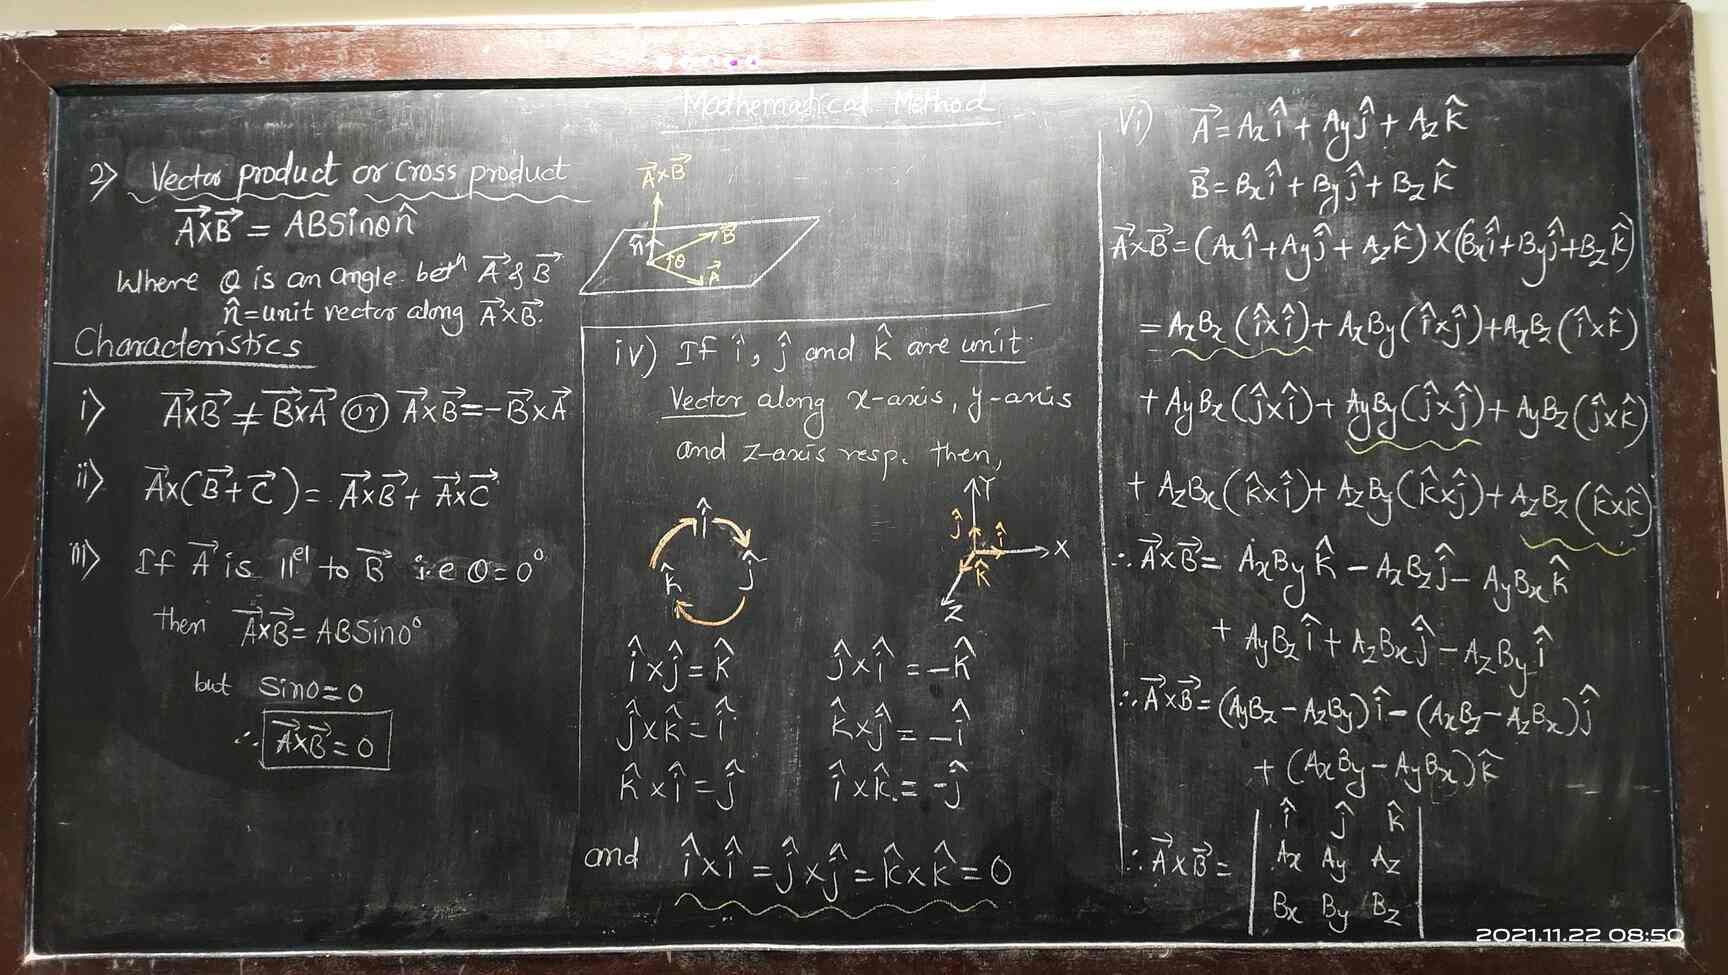 Mathematical Method
2) Vector product or Cross product
A⃗×B⃗ = ABSinθ n̂
Where θ is an angle betⁿ A⃗ & B⃗
n̂ = unit vector along A⃗×B⃗.
Characteristics
i) A⃗×B⃗ ≠ B⃗×A⃗ (or) A⃗×B⃗ = -B⃗×A⃗
ii) A⃗×(B⃗+C⃗) = A⃗×B⃗ + A⃗×C⃗
iii) If A⃗ is ||el to B⃗ i.e θ=0°
then A⃗×B⃗ = ABSin0°
but Sin0=0
∴ A⃗×B⃗ = 0
A⃗×B⃗
n̂ θ B⃗
A⃗
iv) If î, ĵ and k̂ are unit
Vector along x-axis, y-axis
and z-axis resp. then,
î
ĵ
k̂
Y
ĵ î X
k̂
Z
î×ĵ = k̂ ĵ×î = -k̂
ĵ×k̂ = î k̂×ĵ = -î
k̂×î = ĵ î×k̂ = -ĵ
and î×î = ĵ×ĵ = k̂×k̂ = 0
vi) A⃗ = Axî + Ayĵ + Azk̂
B⃗ = Bxî + Byĵ + Bzk̂
A⃗×B⃗ = (Axî + Ayĵ + Azk̂) × (Bxî + Byĵ + Bzk̂)
= AxBx(î×î) + AxBy(î×ĵ) + AxBz(î×k̂)
+ AyBx(ĵ×î) + AyBy(ĵ×ĵ) + AyBz(ĵ×k̂)
+ AzBx(k̂×î) + AzBy(k̂×ĵ) + AzBz(k̂×k̂)
∴ A⃗×B⃗ = AxByk̂ - AxBzĵ - AyBxk̂
+ AyBzî + AzBxĵ - AzByî
∴ A⃗×B⃗ = (AyBz - AzBy)î - (AxBz - AzBx)ĵ
+ (AxBy - AyBx)k̂
î ĵ k̂
∴ A⃗×B⃗ = Ax Ay Az
Bx By Bz
2021.11.22 08:50